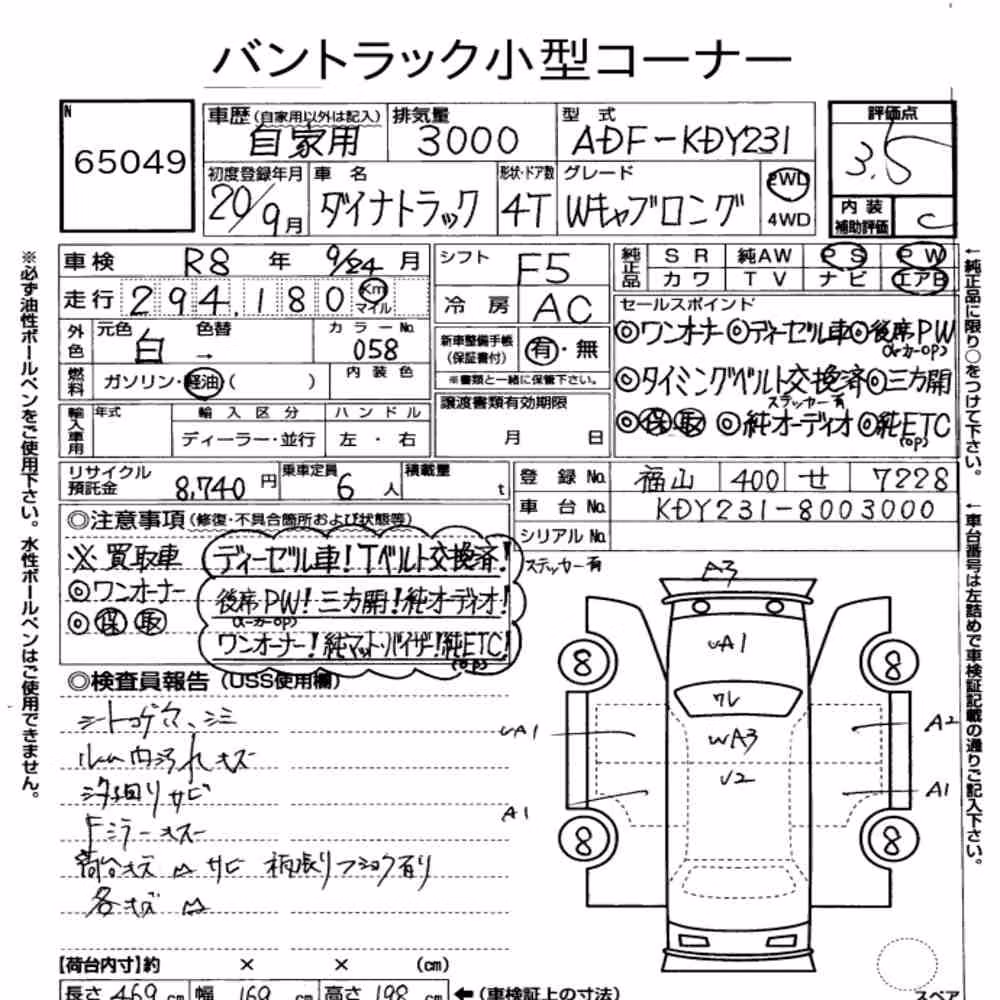 バントラック小型コーナー
N
65049
車歴(自家用以外は記入)
自家用
排気量
3000
型式
ADF-KDY231
評価点
3.5
初度登録年月
20/9月
車名
ダイナトラック
形状・ドア数
4T
グレード
Wキャブロング
2WD
4WD
内装
補助評価
C
車検 R8 年 9/24 月
走行 294,180 Km
マイル
外色
元色 白
色替 →
カラーNo.
058
燃料
ガソリン・軽油( )
内装色
輸入車用
年式
輸入区分
ディーラー・並行
ハンドル
左・右
シフト F5
冷房 AC
新車整備手帳
(保証書付)
有・無
※書類と一緒に保管下さい。
譲渡書類有効期限
月 日
純正品
SR 純AW PS PW
カワ TV ナビ エアB
セールスポイント
◎ワンオーナー◎ディーゼル車◎後席PW
(メーカーOP)
◎タイミングベルト交換済◎三方開
ステッカー有
◎保取 ◎純オーディオ ◎純ETC
(OP)
リサイクル
預託金
8,740円
乗車定員
6人
積載量
t
登録No. 福山 400 せ 7228
車台No. KDY231-8003000
シリアルNo.
◎注意事項(修復・不具合箇所および状態等)
※買取車
◎ワンオーナー
◎保取
ディーゼル車!Tベルト交換済!
ステッカー有
後席PW!三方開!純オーディオ!
(メーカーOP)
ワンオーナー!純マット・バイザー!純ETC!
(OP)
◎検査員報告(USS使用欄)
シートコゲ穴、シミ
ルーム内汚れキズ
下廻りサビ
Fミラーキズ
荷台キズ凹サビ 柄振りフショク有り
各キズ凹
A3
UA1
ワレ
WA3
U2
UA1
A1
A2
A1
8
8
8
8
スペア
【荷台内寸】約 × × (cm)
長さ 469 cm 幅 169 cm 高さ 198 cm ←(車検証上の寸法)
※必ず油性ボールペンをご使用下さい。水性ボールペンはご使用できません。
←純正品に限り○をつけて下さい。
←車台番号は左詰めで車検証記載の通りご記入下さい。